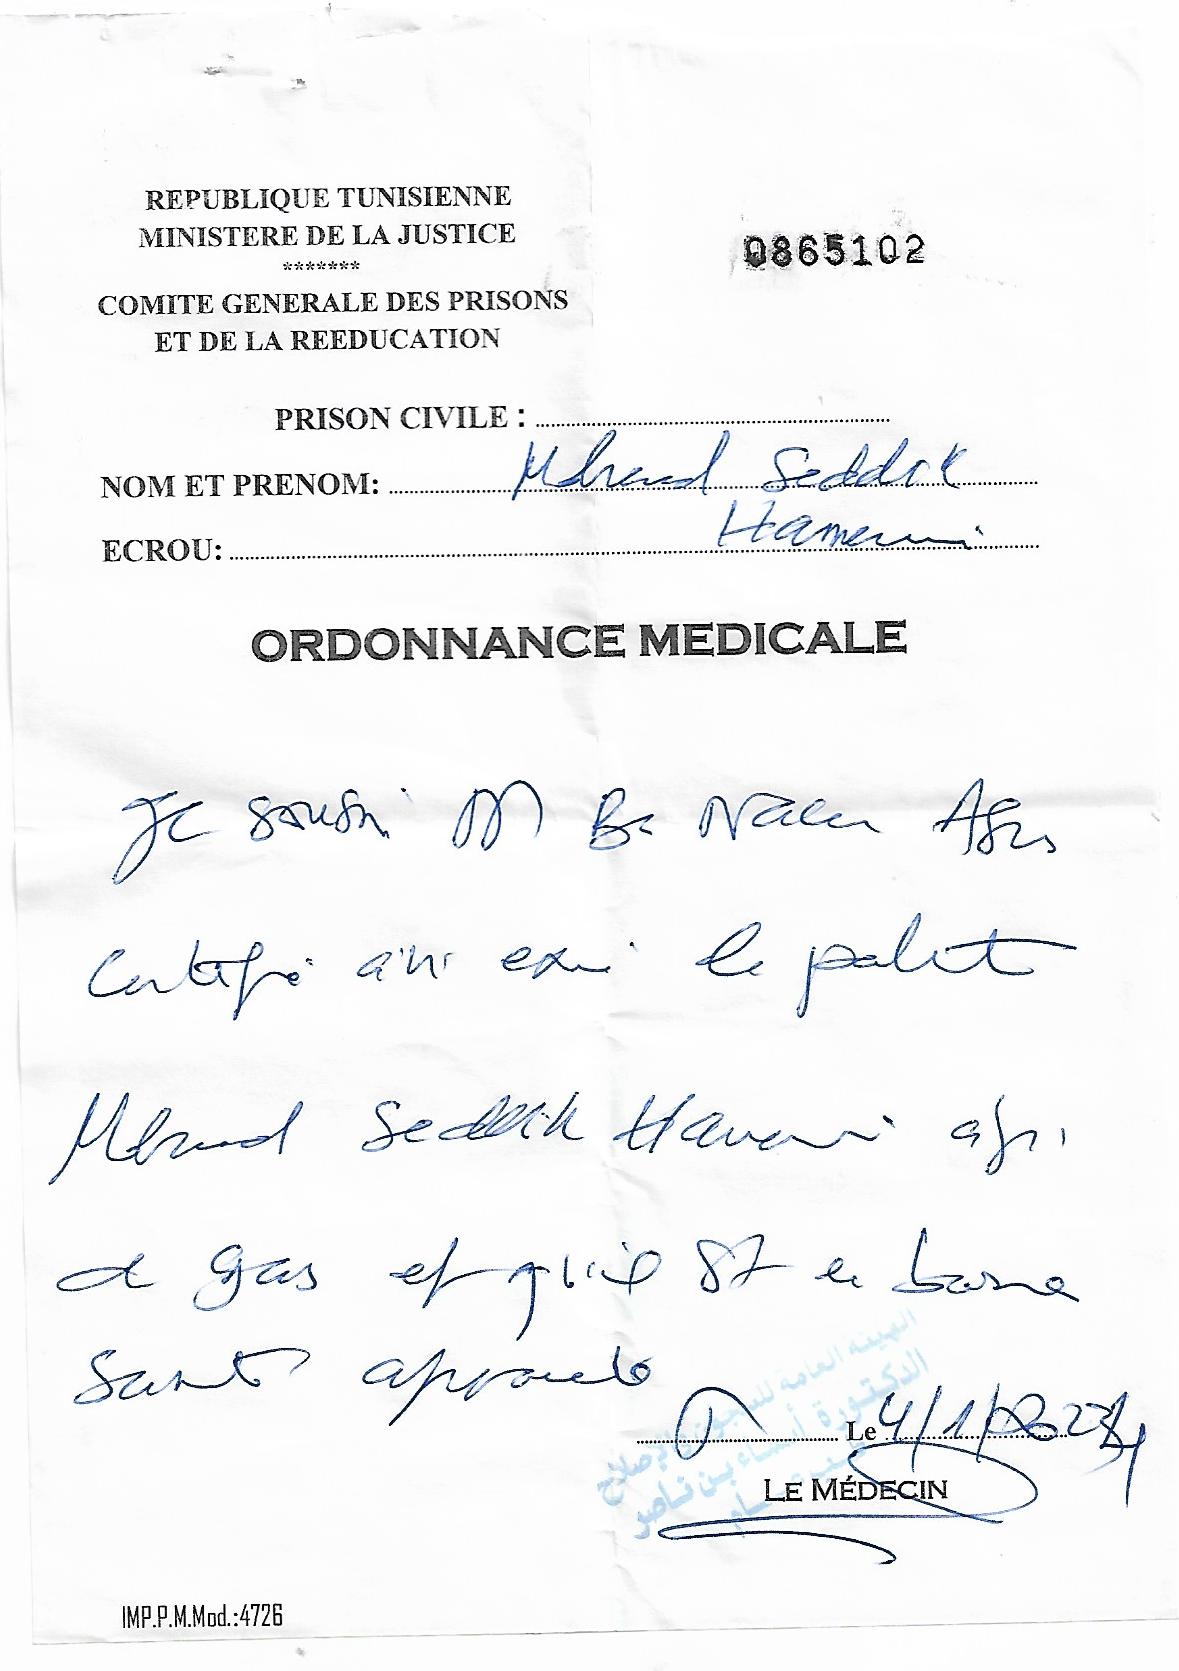 REPUBLIQUE TUNISIENNE
MINISTERE DE LA JUSTICE
*******
COMITE GENERALE DES PRISONS
ET DE LA REEDUCATION
0865102
PRISON CIVILE :
NOM ET PRENOM: Mohamed Seddik
ECROU: Hamemi
ORDONNANCE MEDICALE
Je Be Nacer
Certifie le patient
Mohamed Seddik
et qu'il est en bonne
Santé apparente
الهيئة العامة للسجون والإصلاح
الدكتورة أسماء بن ناصر
Le 4/1/
LE MÉDECIN
IMP.P.M.Mod.:4726